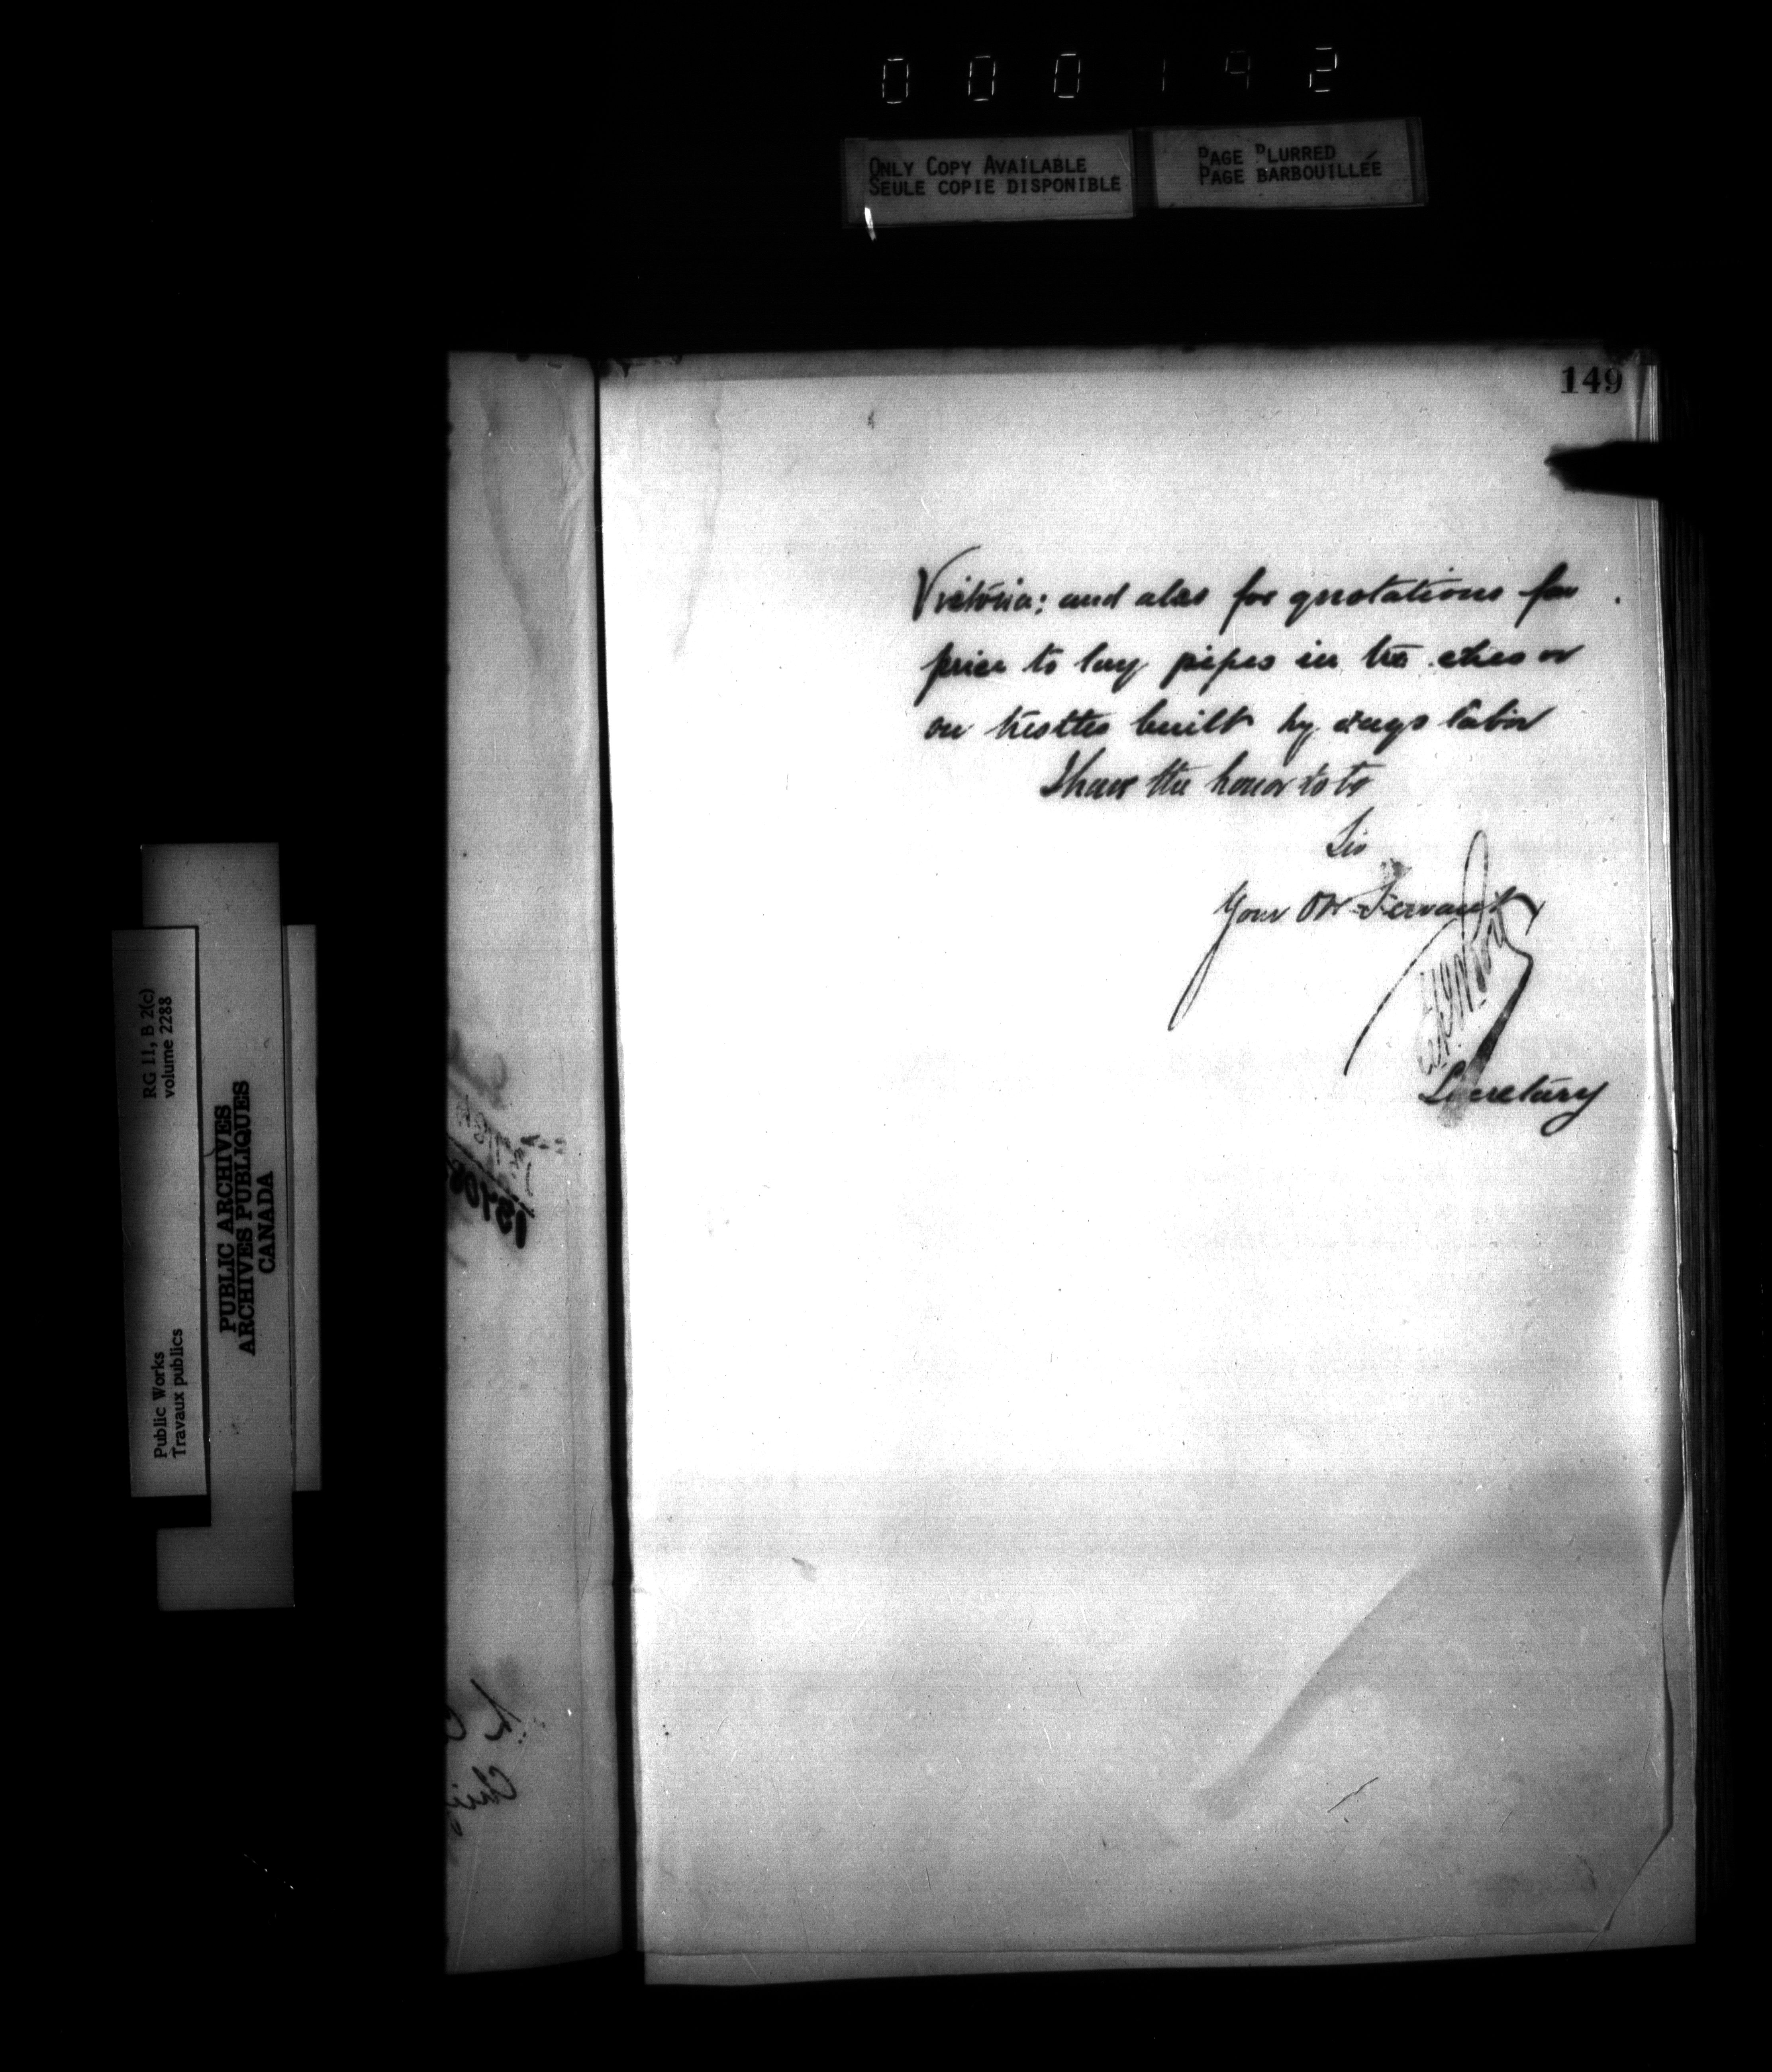 000192
ONLY COPY AVAILABLE
SEULE COPIE DISPONIBLE
PAGE BLURRED
PAGE BARBOUILLÉE
149
Victoria: and also for quotations for
price to lay pipes in
on trestles built by days labor
I have the honor to be
Sir
Your Obt Servant
Secretary
RG 11, B 2(c)
volume 2288
Public Works
Travaux publics
PUBLIC ARCHIVES
ARCHIVES PUBLIQUES
CANADA